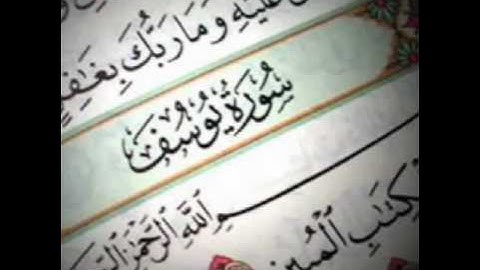 عَلَيْهِ وَمَا رَبُّكَ بِغَٰفِلٍ
سُورَةُ يُوسُفَ
بِسْمِ اللَّهِ الرَّحْمَٰنِ
الْكِتَٰبِ الْمُبِينِ